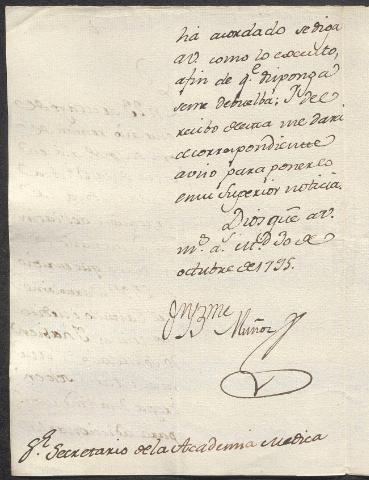 ha acordado se diga
a V. como lo executo,
a fin de q.e disponga
se me debuelba; y de
recibo de esta me dará
el correspondiente
aviso para ponerlo
en su Superior noticia.
Dios gûe a V.
m.s a.s M.d 30 de
octubre de 1795.
B.me Muñoz
S.r Secretario de la Academia Medica